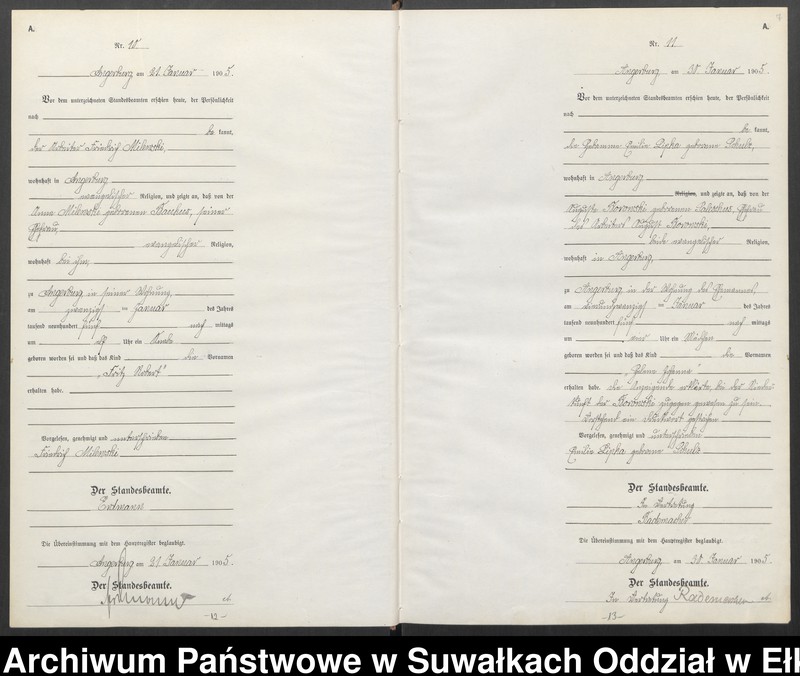 A.
Nr. 10
Angerburg am 21. Januar 1905.
Vor dem unterzeichneten Standesbeamten erschien heute, der Persönlichkeit
nach
be kannt,
der Arbeiter Friedrich Milewski,
wohnhaft in Angerburg
evangelischer Religion, und zeigte an, daß von der
Anna Milewski geborenen, seiner
Ehefrau,
evangelischer Religion,
wohnhaft bei ihm,
zu Angerburg in seiner Wohnung,
am zwanzigsten Januar des Jahres
tausend neunhundert fünf nach mittags
um elf Uhr ein Knabe
geboren worden sei und daß das Kind den Vornamen
"Fritz Robert"
erhalten habe.
Vorgelesen, genehmigt und unterschrieben
Friedrich Milewski
Der Standesbeamte.
Erdmann
Die Übereinstimmung mit dem Hauptregister beglaubigt.
Angerburg am 21. Januar 1905.
Der Standesbeamte.
Erdmann
-12-
A.
Nr. 11
Angerburg am 30. Januar 1905.
Vor dem unterzeichneten Standesbeamten erschien heute, der Persönlichkeit
nach
be kannt,
die Hebamme Emilie Lipka geborene Schulz,
wohnhaft in Angerburg
Religion, und zeigte an, daß von der
Auguste Borowski geborenen, Ehefrau
des Arbeiters August Borowski,
beide evangelischer Religion,
wohnhaft in Angerburg,
zu Angerburg in der Wohnung des Ehemannes,
am Januar des Jahres
tausend neunhundert fünf nach mittags
um vier Uhr ein Mädchen
geboren worden sei und daß das Kind die Vornamen
"Helene Johanna"
erhalten habe. Die Anzeigende erklärte, bei der Nieder-
kunft der Borowski zugegen gewesen zu sein.
Vorstehend ein Druckwort gestrichen
Vorgelesen, genehmigt und unterschrieben
Emilie Lipka geborene Schulz
Der Standesbeamte.
In Vertretung
Rademacher
Die Übereinstimmung mit dem Hauptregister beglaubigt.
Angerburg am 30. Januar 1905.
Der Standesbeamte.
In Vertretung Rademacher
-13-
Archiwum Państwowe w Suwałkach Oddział w Ełk